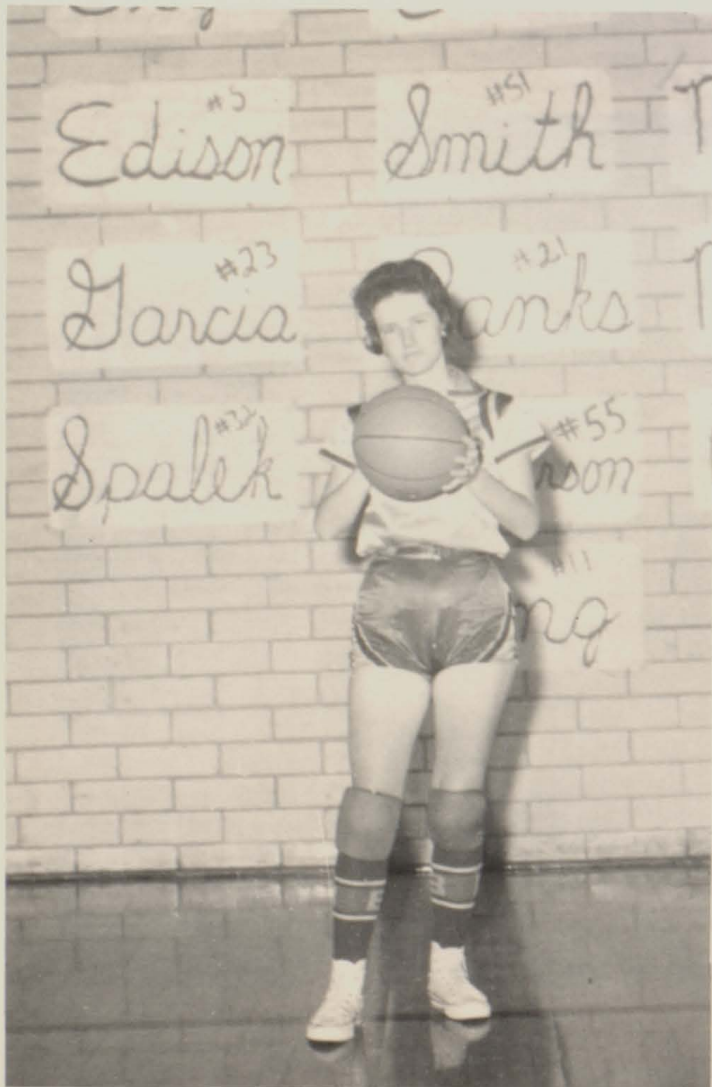 #5
Edison
#51
Smith
#23
Garcia
#21
anks
#32
Spalek
#55
rson
#11
ng